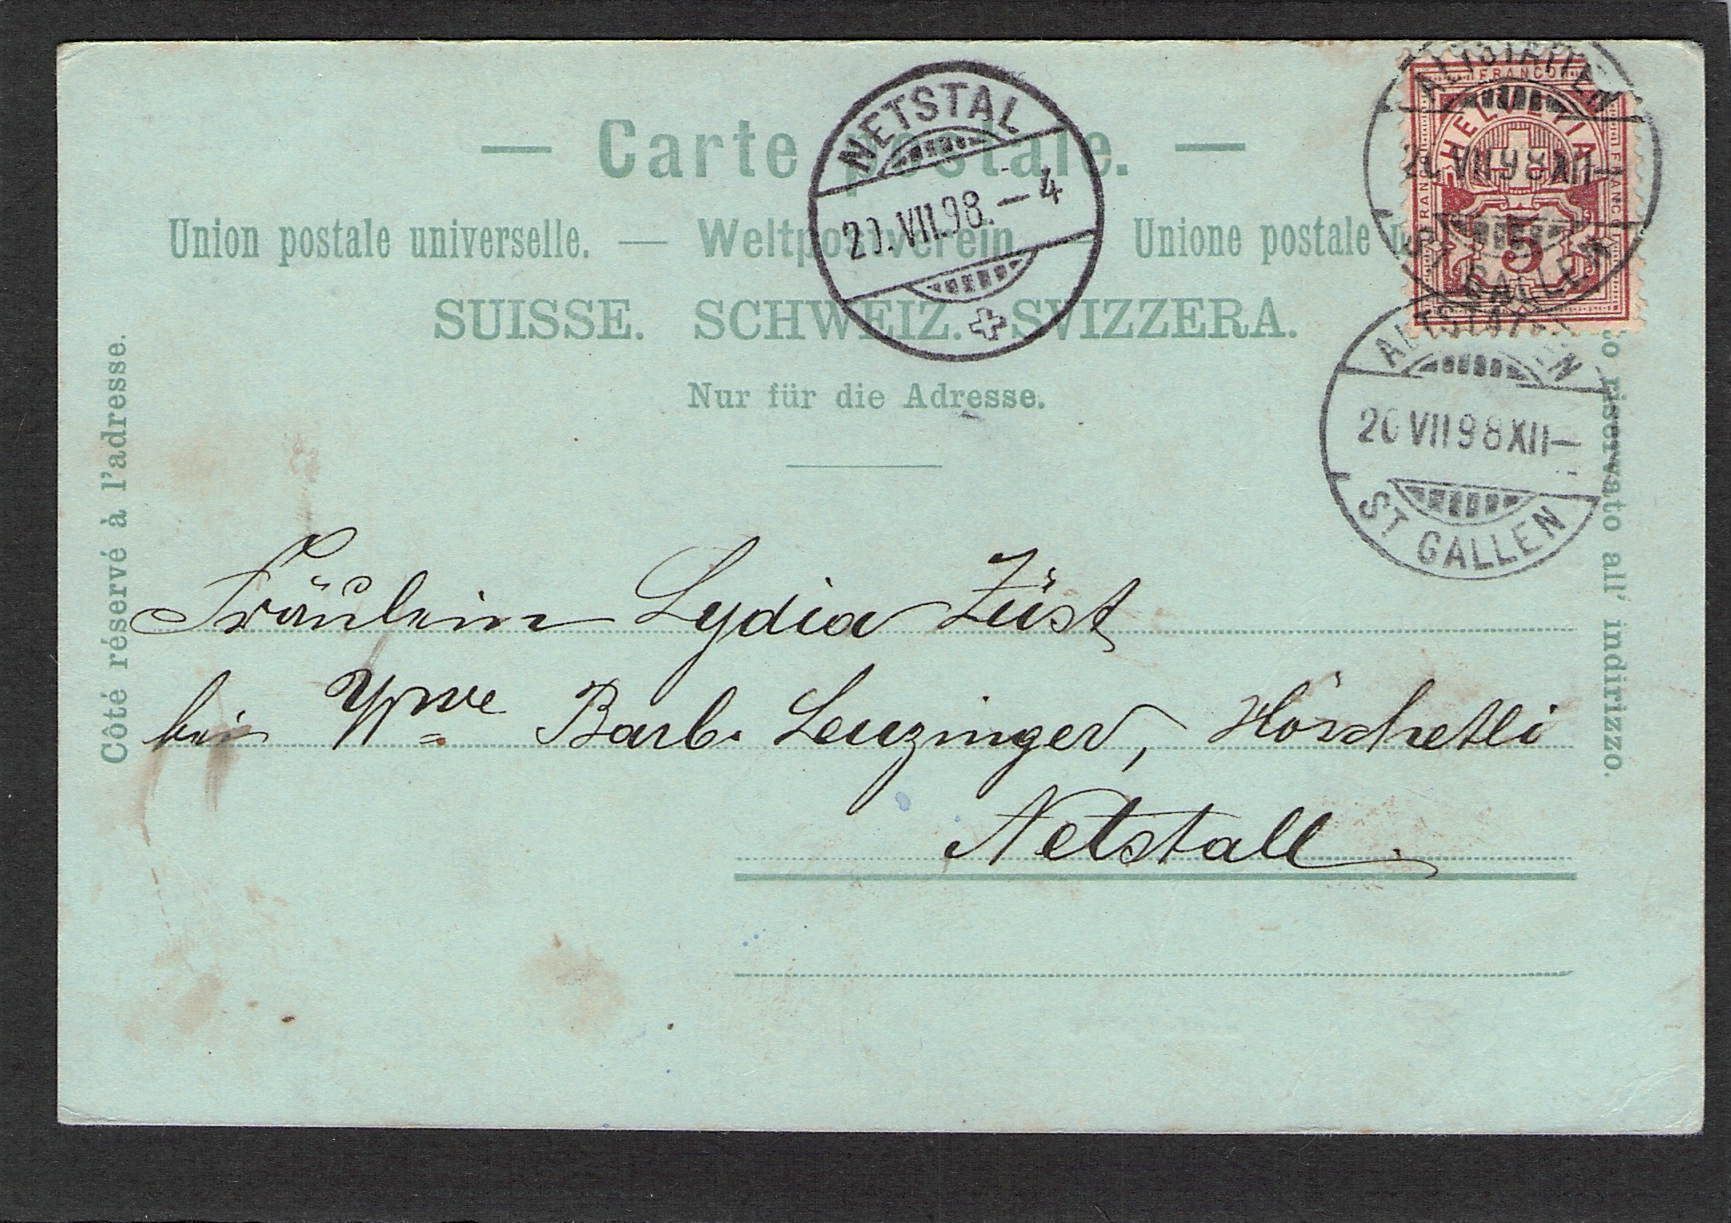 — Carte postale. —
Union postale universelle. — Weltpostverein — Unione postale
SUISSE. SCHWEIZ. SVIZZERA.
Nur für die Adresse.
Côté réservé à l'adresse.
riservato all' indirizzo.
NETSTAL
20.VII.98.-4
FRANCO
HELVETIA
5
ALTSTÄTTEN
20 VII 98 XII-
ST GALLEN
ALTSTÄTTEN
20 VII 98 XII-
ST GALLEN
Fräulein Lydia Züst
bei Barb. Leuzinger,
Netstall.